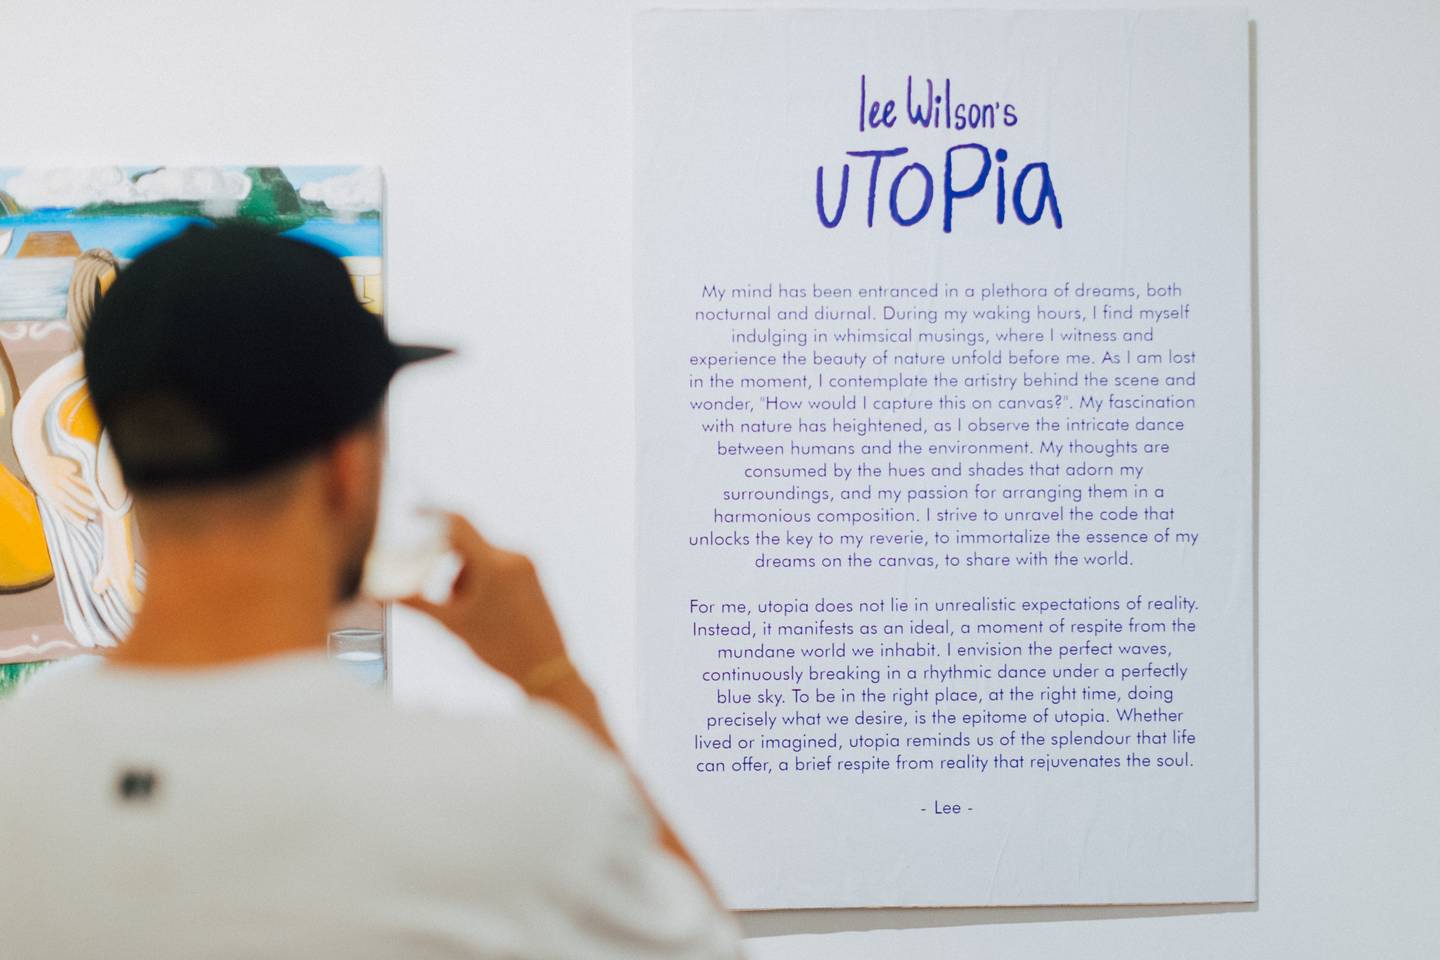 lee Wilson's
uToPia
My mind has been entranced in a plethora of dreams, both
nocturnal and diurnal. During my waking hours, I find myself
indulging in whimsical musings, where I witness and
experience the beauty of nature unfold before me. As I am lost
in the moment, I contemplate the artistry behind the scene and
wonder, "How would I capture this on canvas?". My fascination
with nature has heightened, as I observe the intricate dance
between humans and the environment. My thoughts are
consumed by the hues and shades that adorn my
surroundings, and my passion for arranging them in a
harmonious composition. I strive to unravel the code that
unlocks the key to my reverie, to immortalize the essence of my
dreams on the canvas, to share with the world.
For me, utopia does not lie in unrealistic expectations of reality.
Instead, it manifests as an ideal, a moment of respite from the
mundane world we inhabit. I envision the perfect waves,
continuously breaking in a rhythmic dance under a perfectly
blue sky. To be in the right place, at the right time, doing
precisely what we desire, is the epitome of utopia. Whether
lived or imagined, utopia reminds us of the splendour that life
can offer, a brief respite from reality that rejuvenates the soul.
- Lee -